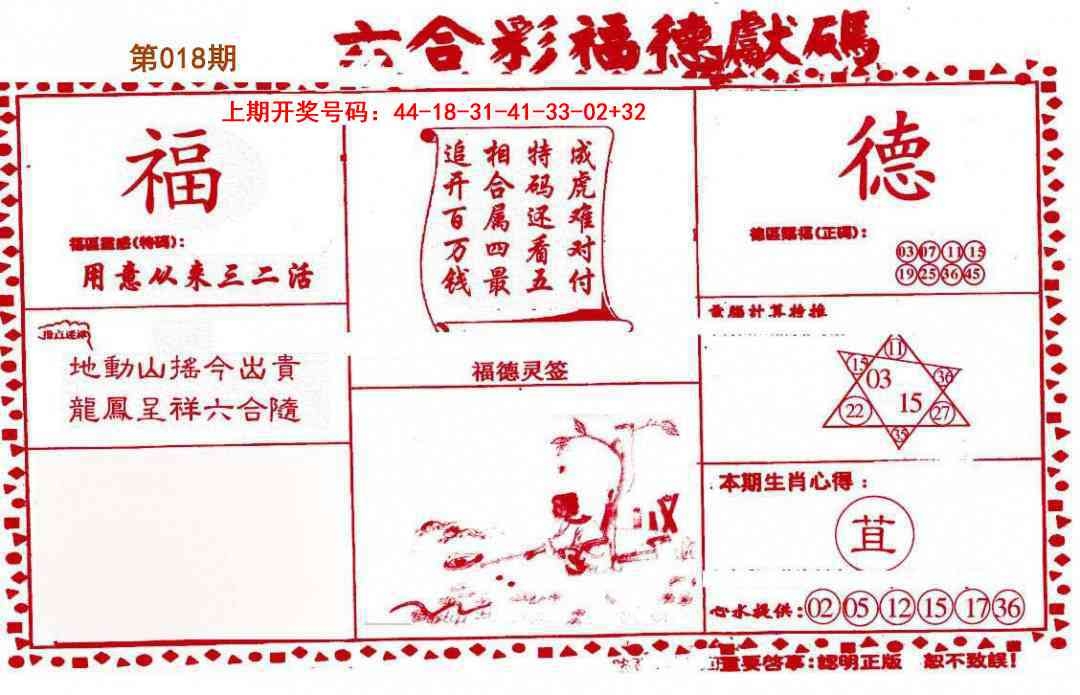 六合彩福德獻碼
第018期
上期开奖号码：44-18-31-41-33-02+32
福
福區靈感(特碼)：
用意从来三二活
地動山搖今出貴
龍鳳呈祥六合隨
成虎难对付
特码还看五
相合属四最
追开百万钱
福德灵签
德
德區賜福(正碼)：
03 07 11 15
19 25 36 45
電腦計算特推
11
15 03 36
22 15 27
35
本期生肖心得：
苴
心水提供：02 05 12 15 17 36
重要啓事：認明正版 恕不致誤！